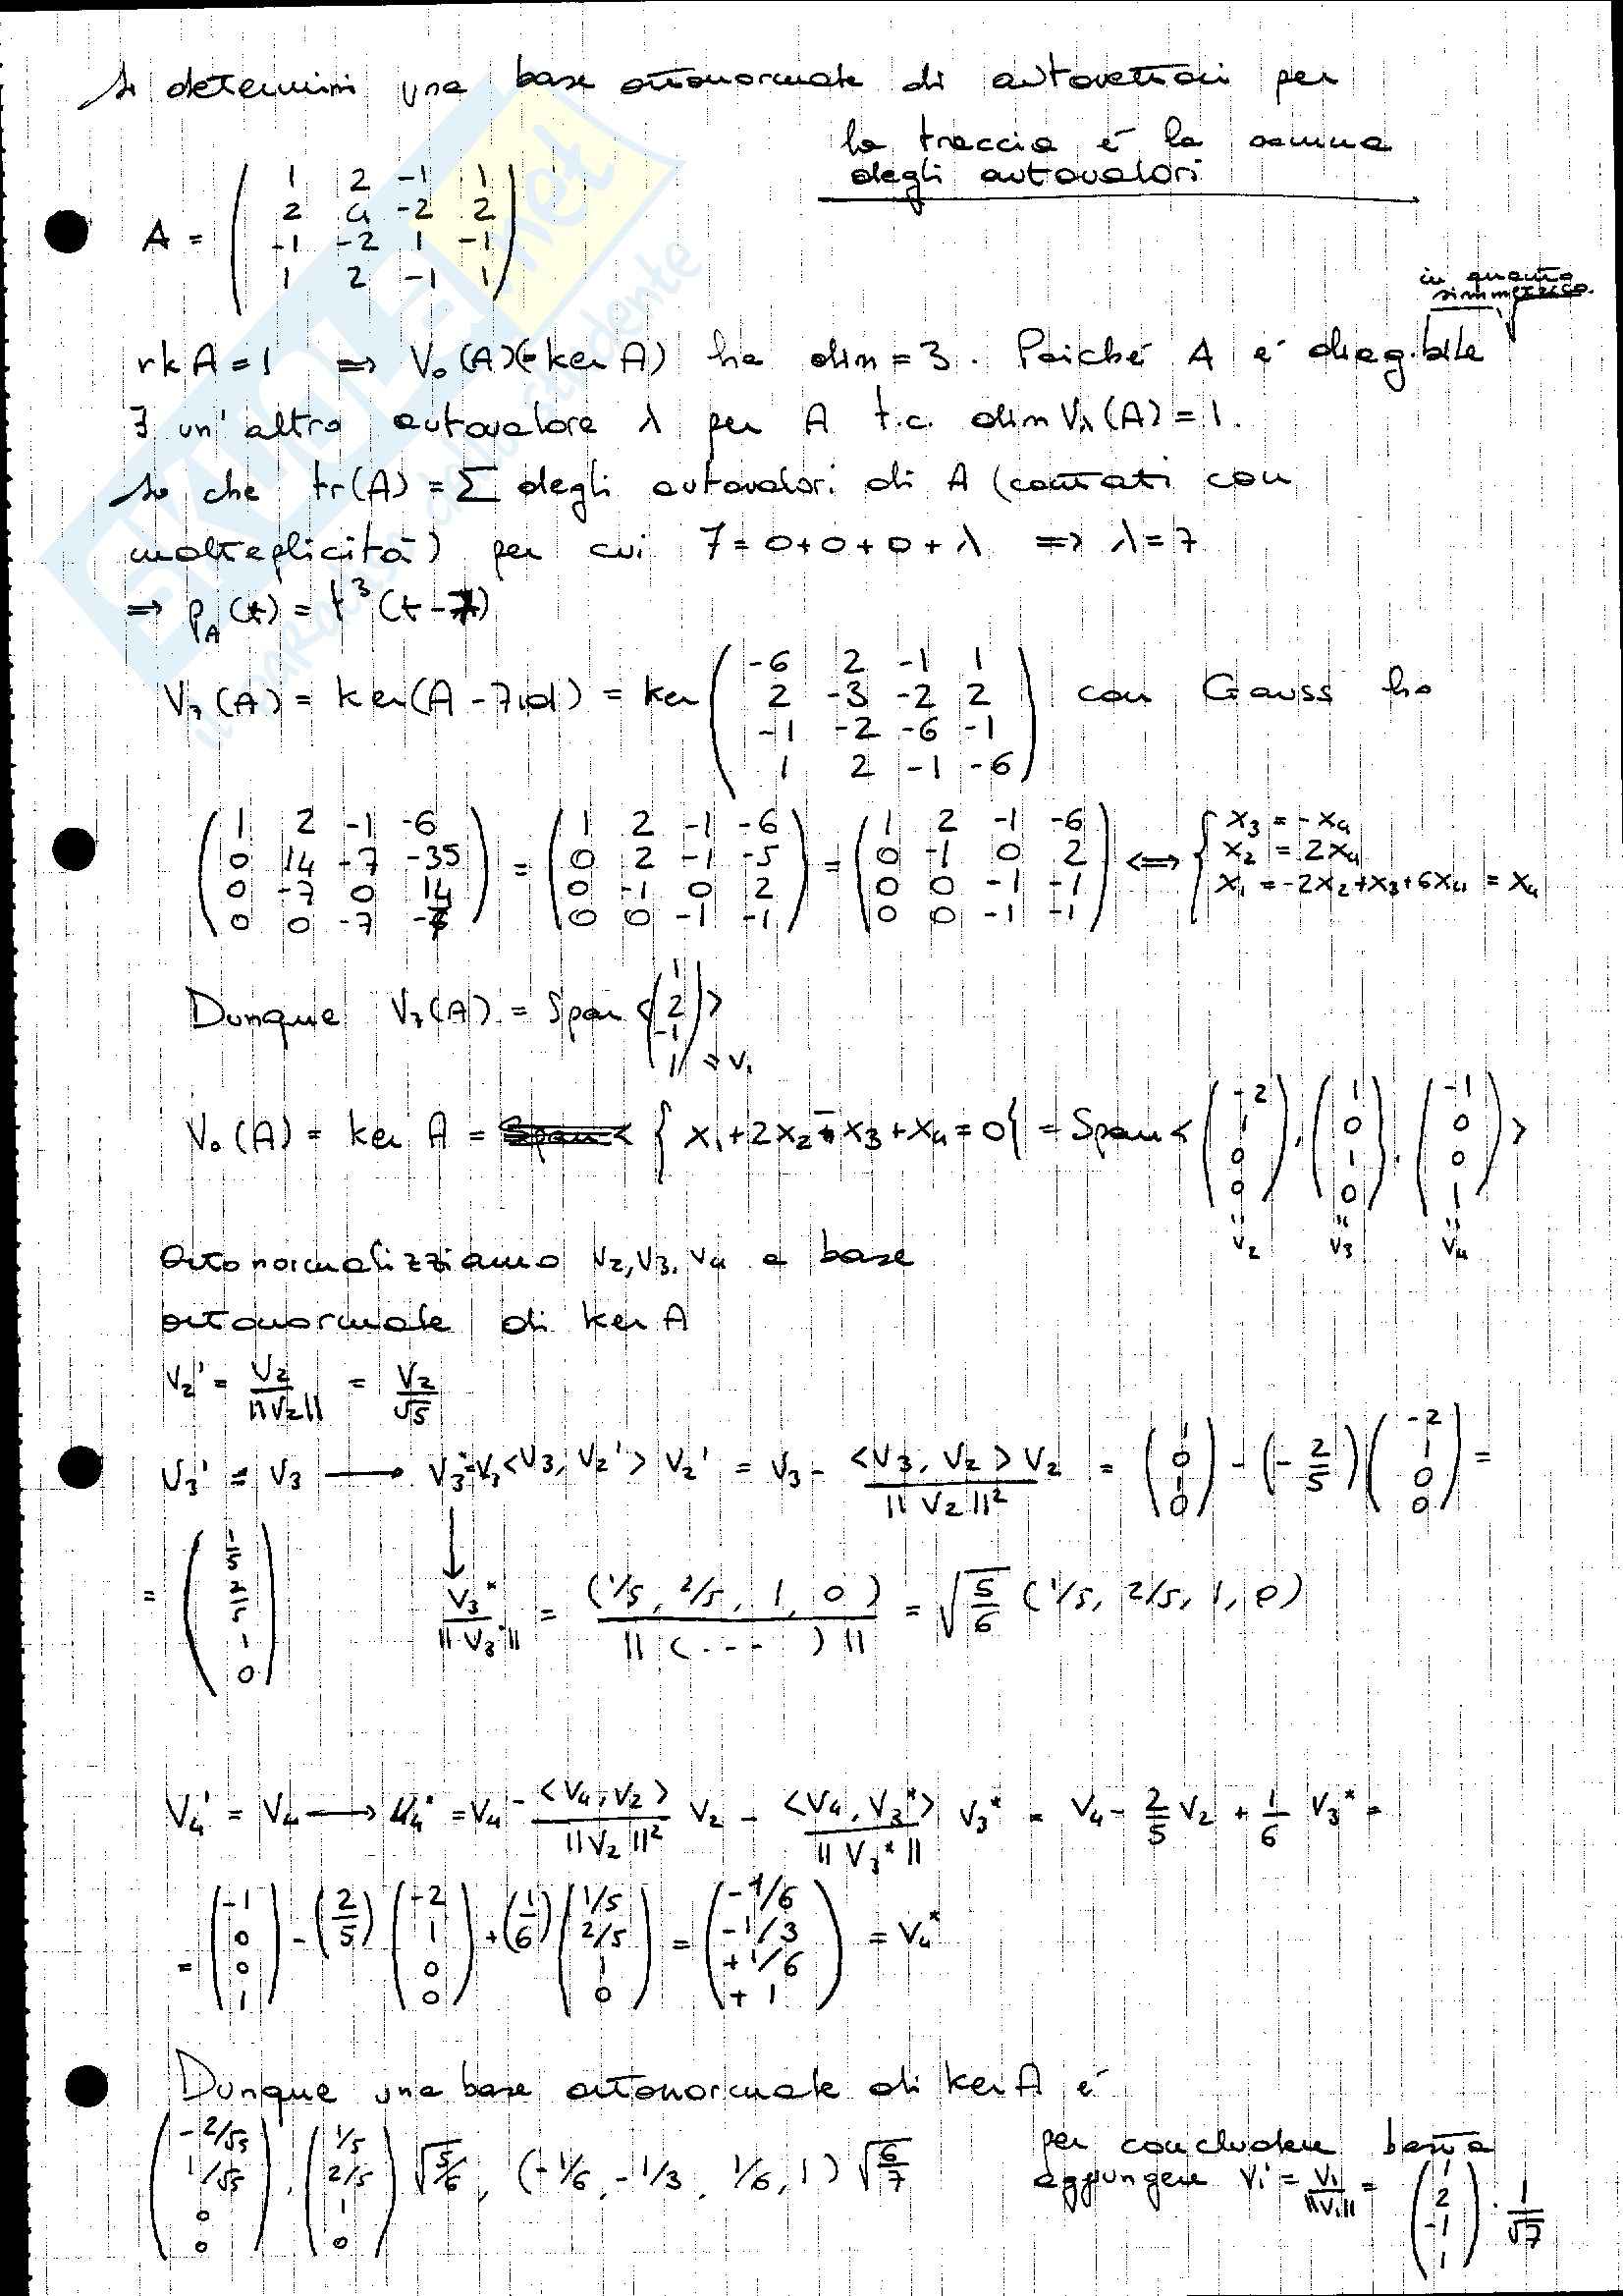 Si determini una base ortonormale di autovettori per
la traccia è la somma
degli autovalori
A = ( 1 2 -1 1
2 4 -2 2
-1 -2 1 -1
1 2 -1 1 )
in quanto
simmetrica.
rk A = 1 ⇒ V₀(A)(= ker A) ha dim = 3. Poiché A è diag.bile
∃ un'altro autovalore λ per A t.c. dim Vλ(A) = 1.
So che tr(A) = Σ degli autovalori di A (contati con
molteplicità) per cui 7 = 0+0+0+λ ⇒ λ = 7
⇒ p_A(t) = t³(t-7)
V₇(A) = ker(A - 7id) = ker ( -6 2 -1 1
2 -3 -2 2
-1 -2 -6 -1
1 2 -1 -6 ) con Gauss ho
( 1 2 -1 -6
0 14 -7 -35
0 -7 0 14
0 0 -7 -7 ) = ( 1 2 -1 -6
0 2 -1 -5
0 -1 0 2
0 0 -1 -1 ) = ( 1 2 -1 -6
0 -1 0 2
0 0 -1 -1
0 0 -1 -1 ) ⟺ { x₃ = -x₄
x₂ = 2x₄
x₁ = -2x₂+x₃+6x₄ = x₄
Dunque V₇(A) = Span < ( 1
2
-1
1 ) > = v₁
V₀(A) = ker A = { x₁+2x₂-x₃+x₄=0 } = Span < ( -2 1 0 0 ), ( 1 0 1 0 ), ( -1 0 0 1 ) >
v₂ v₃ v₄
Ortonormalizziamo v₂, v₃, v₄ a base
ortonormale di ker A
v₂' = v₂/||v₂|| = v₂/√5
v₃' = v₃ → v₃* = v₃ <v₃, v₂'> v₂' = v₃ - <v₃, v₂> v₂/||v₂||² = ( 1 0 1 0 ) - (-2/5) ( -2 1 0 0 ) =
= ( 1/5 2/5 1 0 ) v₃*/||v₃*|| = (1/5, 2/5, 1, 0)/||(...)|| = √5/6 (1/5, 2/5, 1, 0)
v₄' = v₄ → v₄* = v₄ - <v₄, v₂>/||v₂||² v₂ - <v₄, v₃*>/||v₃*|| v₃* = v₄ - 2/5 v₂ + 1/6 v₃* =
= ( -1 0 0 1 ) - (2/5) ( -2 1 0 0 ) + (1/6) ( 1/5 2/5 1 0 ) = ( -1/6 -1/3 +1/6 +1 ) = v₄*
Dunque una base ortonormale di ker A è
( -2/√5 1/√5 0 0 ), ( 1/5 2/5 1 0 ) √5/6, (-1/6, -1/3, 1/6, 1) √6/7
per concludere basta
aggiungere v₁' = v₁/||v₁|| = ( 1 2 -1 1 ) · 1/√7